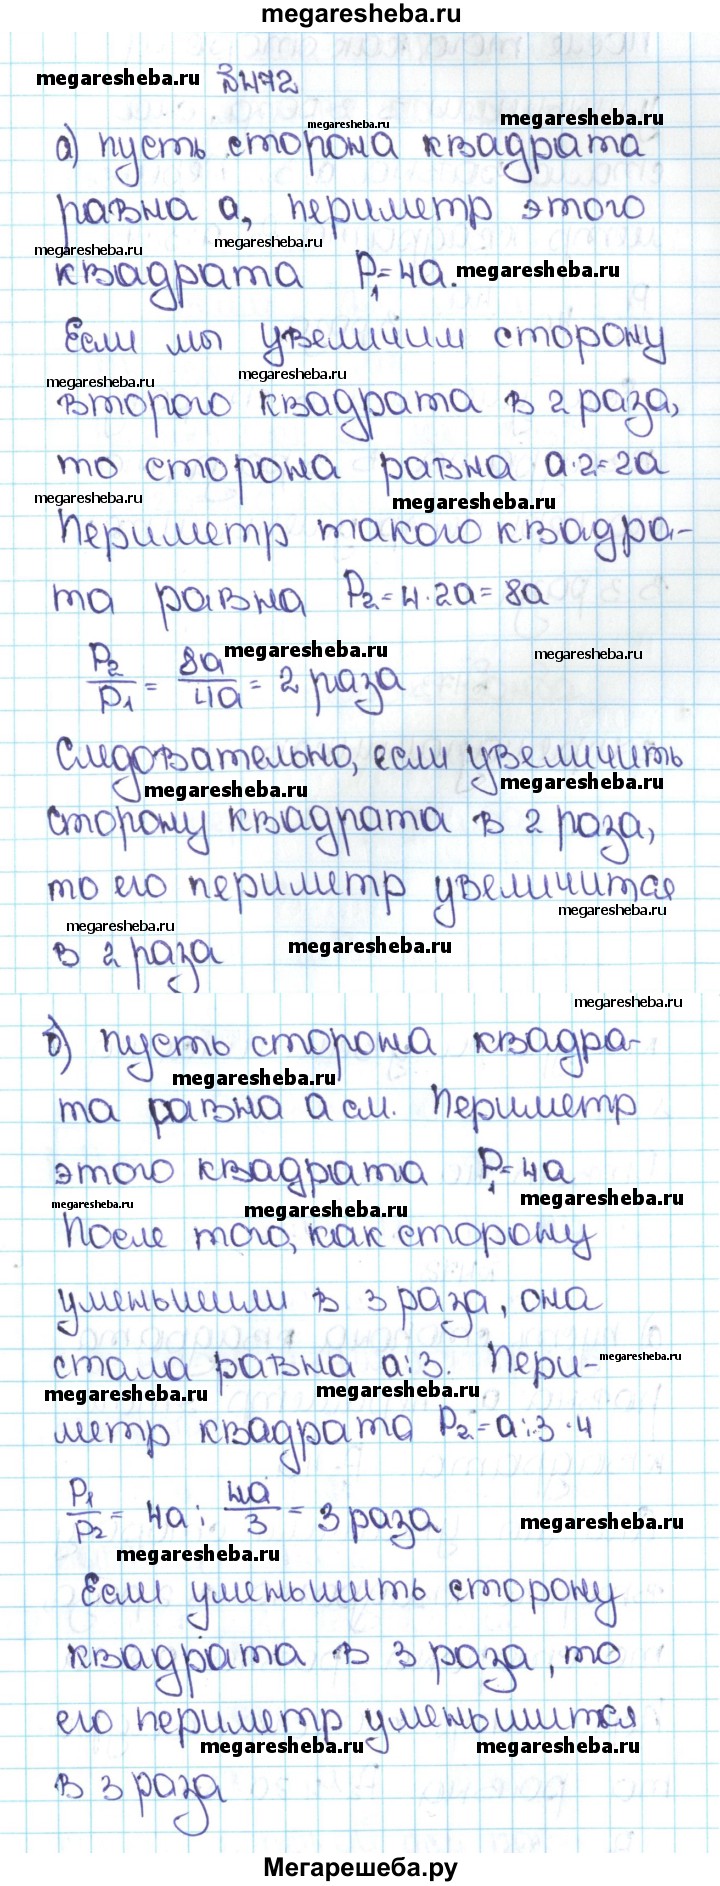 megaresheba.ru
megaresheba.ru №472
megaresheba.ru megaresheba.ru
а) пусть сторона квадрата
равна а, периметр этого
megaresheba.ru megaresheba.ru
квадрата P₁=4a. megaresheba.ru
Если мы увеличим сторону
megaresheba.ru megaresheba.ru
второго квадрата в 2 раза,
то сторона равна a·2=2a
megaresheba.ru megaresheba.ru
Периметр такого квадра-
та равна P₂=4·2a=8a
megaresheba.ru megaresheba.ru
P₂/P₁ = 8a/4a = 2 раза
Следовательно, если увеличить
megaresheba.ru megaresheba.ru
сторону квадрата в 2 раза,
то его периметр увеличится
megaresheba.ru megaresheba.ru
в 2 раза megaresheba.ru
megaresheba.ru
б) пусть сторона квадра-
megaresheba.ru
та равна а см. Периметр
этого квадрата P₁=4a
megaresheba.ru megaresheba.ru megaresheba.ru
После того, как сторону
уменьшили в 3 раза, она
стала равна a:3. Пери-
megaresheba.ru
megaresheba.ru megaresheba.ru
метр квадрата P₂=a:3·4
P₁/P₂ = 4a : 4a/3 = 3 раза megaresheba.ru
megaresheba.ru
Если уменьшить сторону
квадрата в 3 раза, то
его периметр уменьшится
megaresheba.ru megaresheba.ru
в 3 раза
Мегарешеба.ру